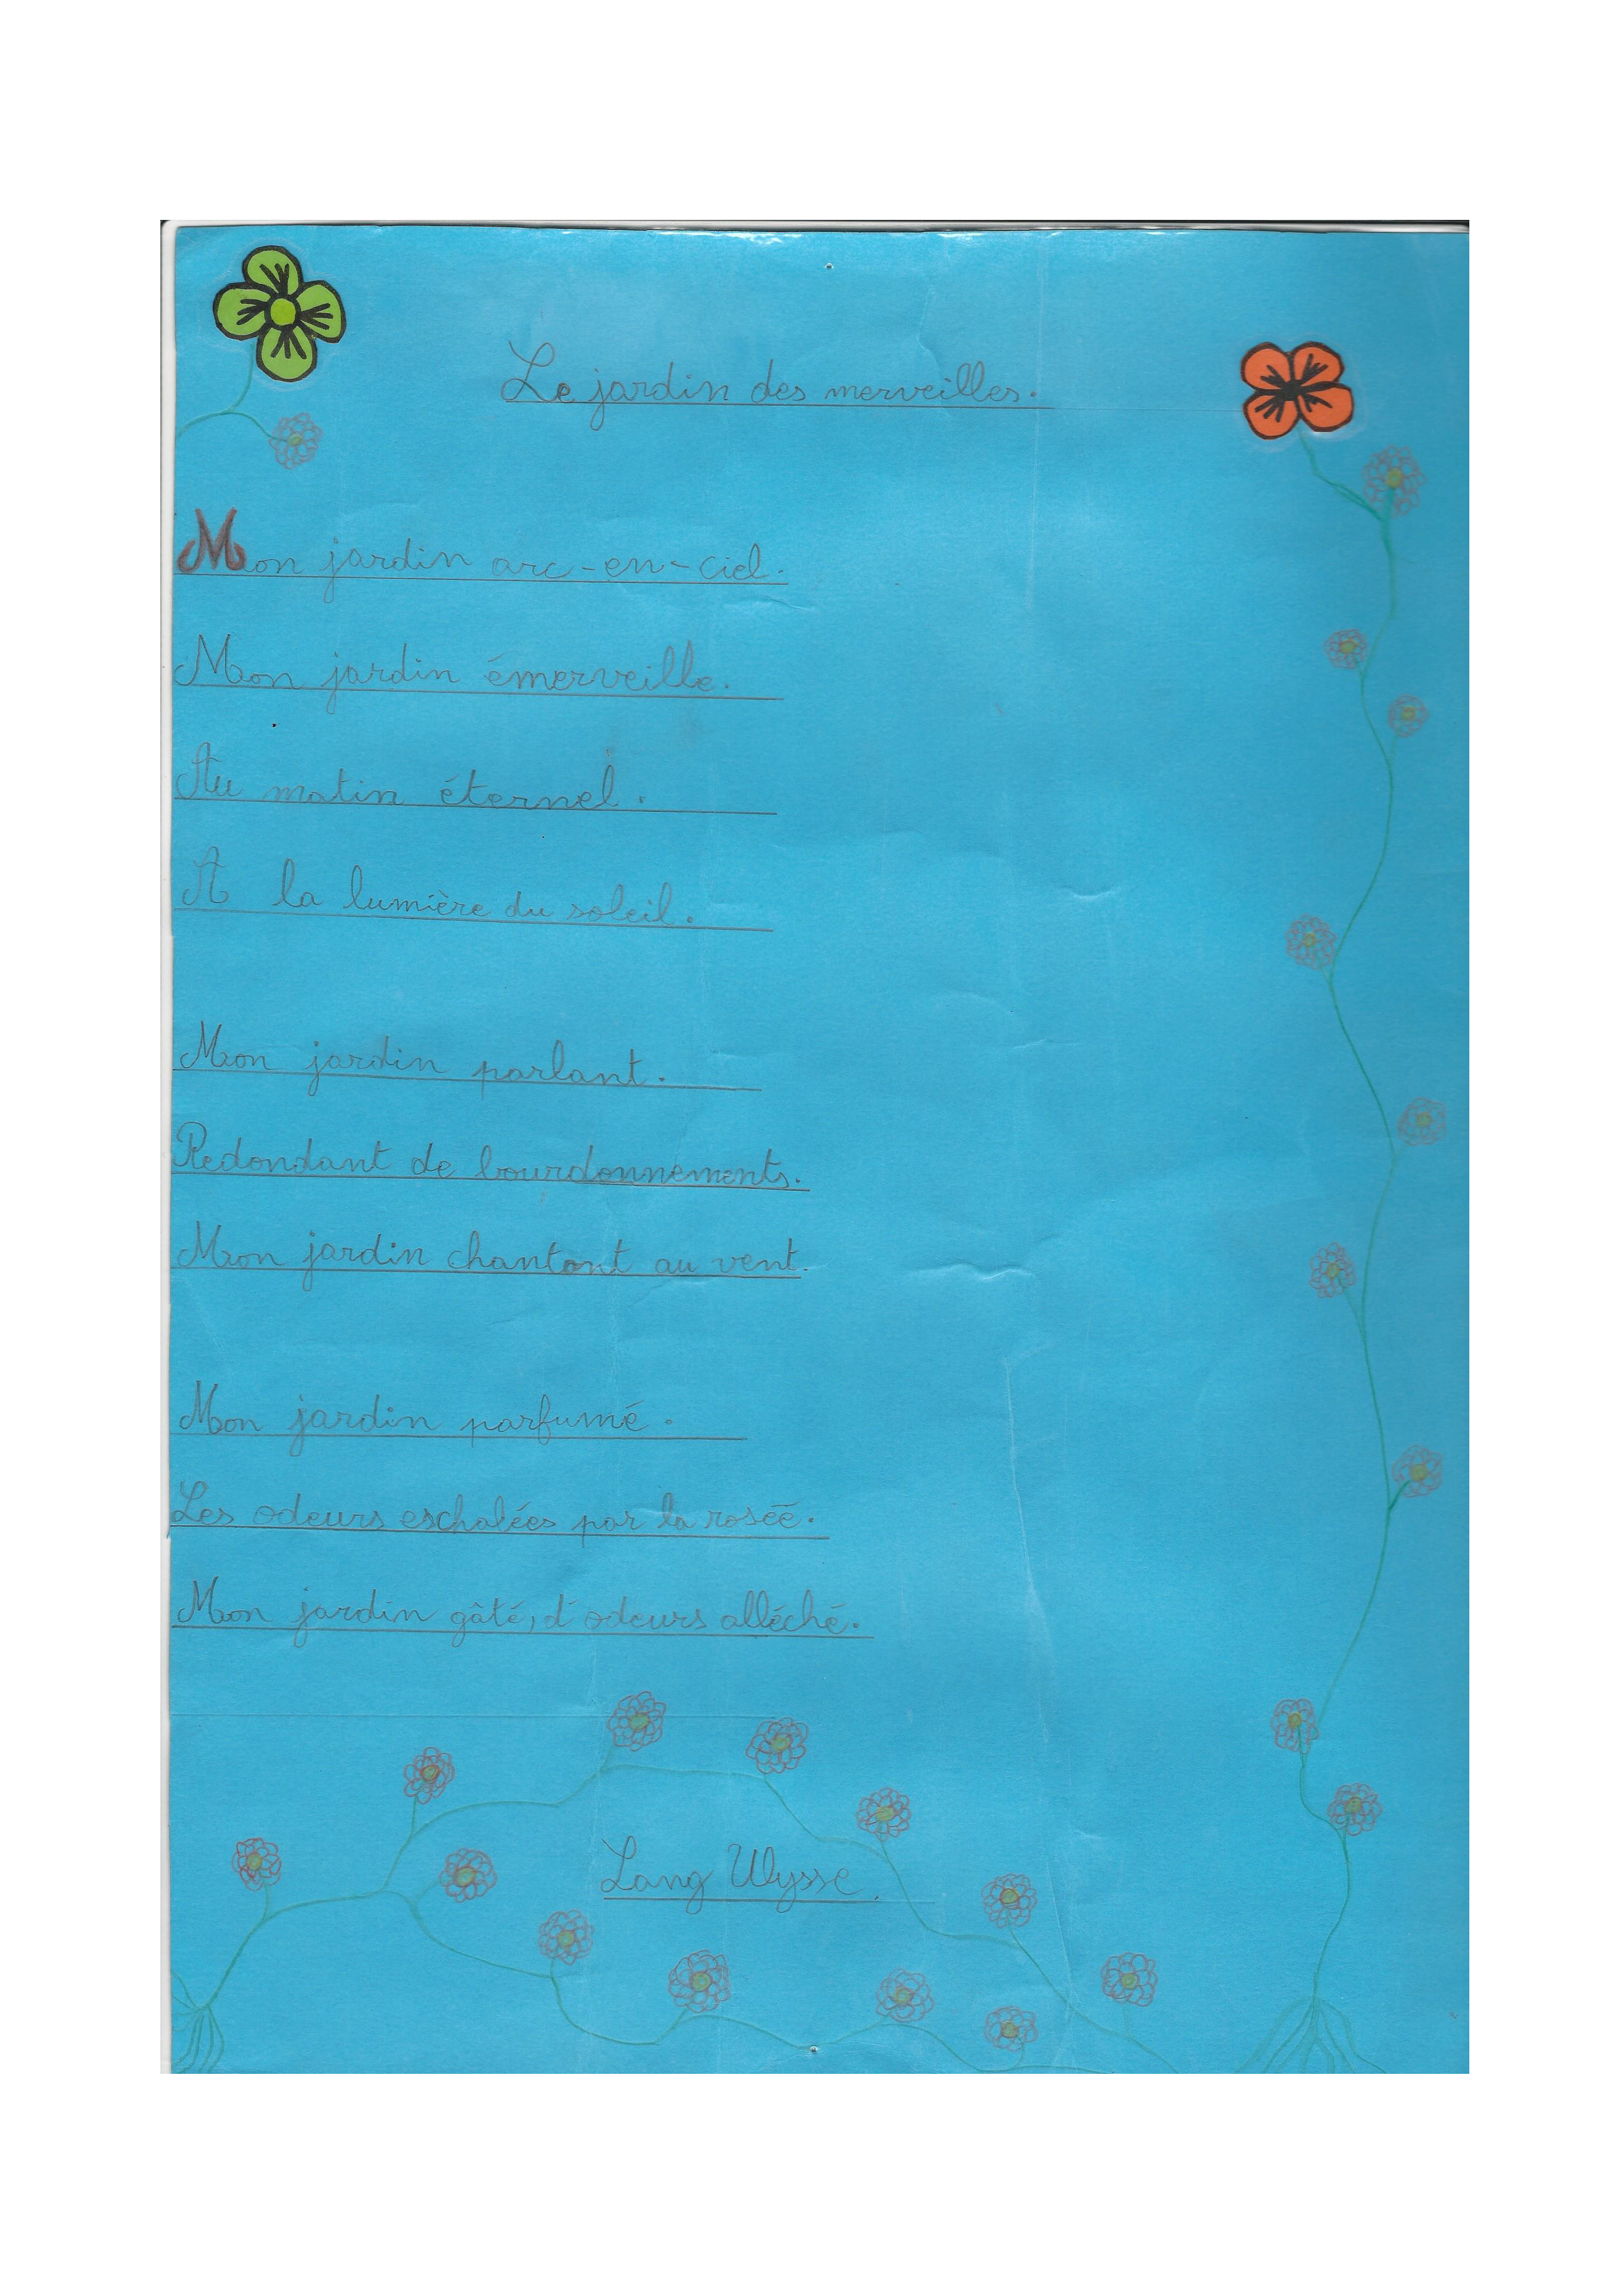 Le jardin des merveilles.
Mon jardin arc-en-ciel.
Mon jardin émerveille.
Au matin éternel.
A la lumière du soleil.
Mon jardin parlant.
Redondant de bourdonnements.
Mon jardin chantant au vent.
Mon jardin parfumé.
Les odeurs eschalées par la rosée.
Mon jardin gâté, d'odeurs alléché.
Lang Ulysse.